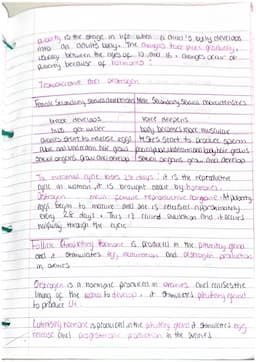 puberty is the stage in life when a child's body develops
into an adults body. The changes take place gradually,
usually between the ages of 10 and 16. Changes occur at
puberty because of hormones:
Testosterone and oestrogen
Female Secondary sexual characteristics Male Secondary sexual characteristics
breast develops voice deepens
hips get wider body becomes more muscular
ovaries start to release eggs testes start to produce sperm
pubic and underarm hair grows pubic and underarm and body hair grows
sexual organs grow and develop sexual organs grow and develop
The menstrual cycle lasts 28 days: it is the reproductive
cycle in women, it is brought about by hormones.
Oestrogen main female reproductive hormone. At puberty
eggs begin to mature and one is released approximately
every 28 days. This is called ovulation and it occurs
halfway through the cycle
Follicle Stimulating hormone is produced in the pituitary gland
and it stimulates egg maturation and oestrogen production
in ovaries
Oestrogen is a hormone produced in ovaries and causes the
lining of the to develop. it stimulates pituitary gland
to produce LH.
Luteinising hormone is produced in the pituitary gland it stimulates egg
release and progesterone production in the ovaries